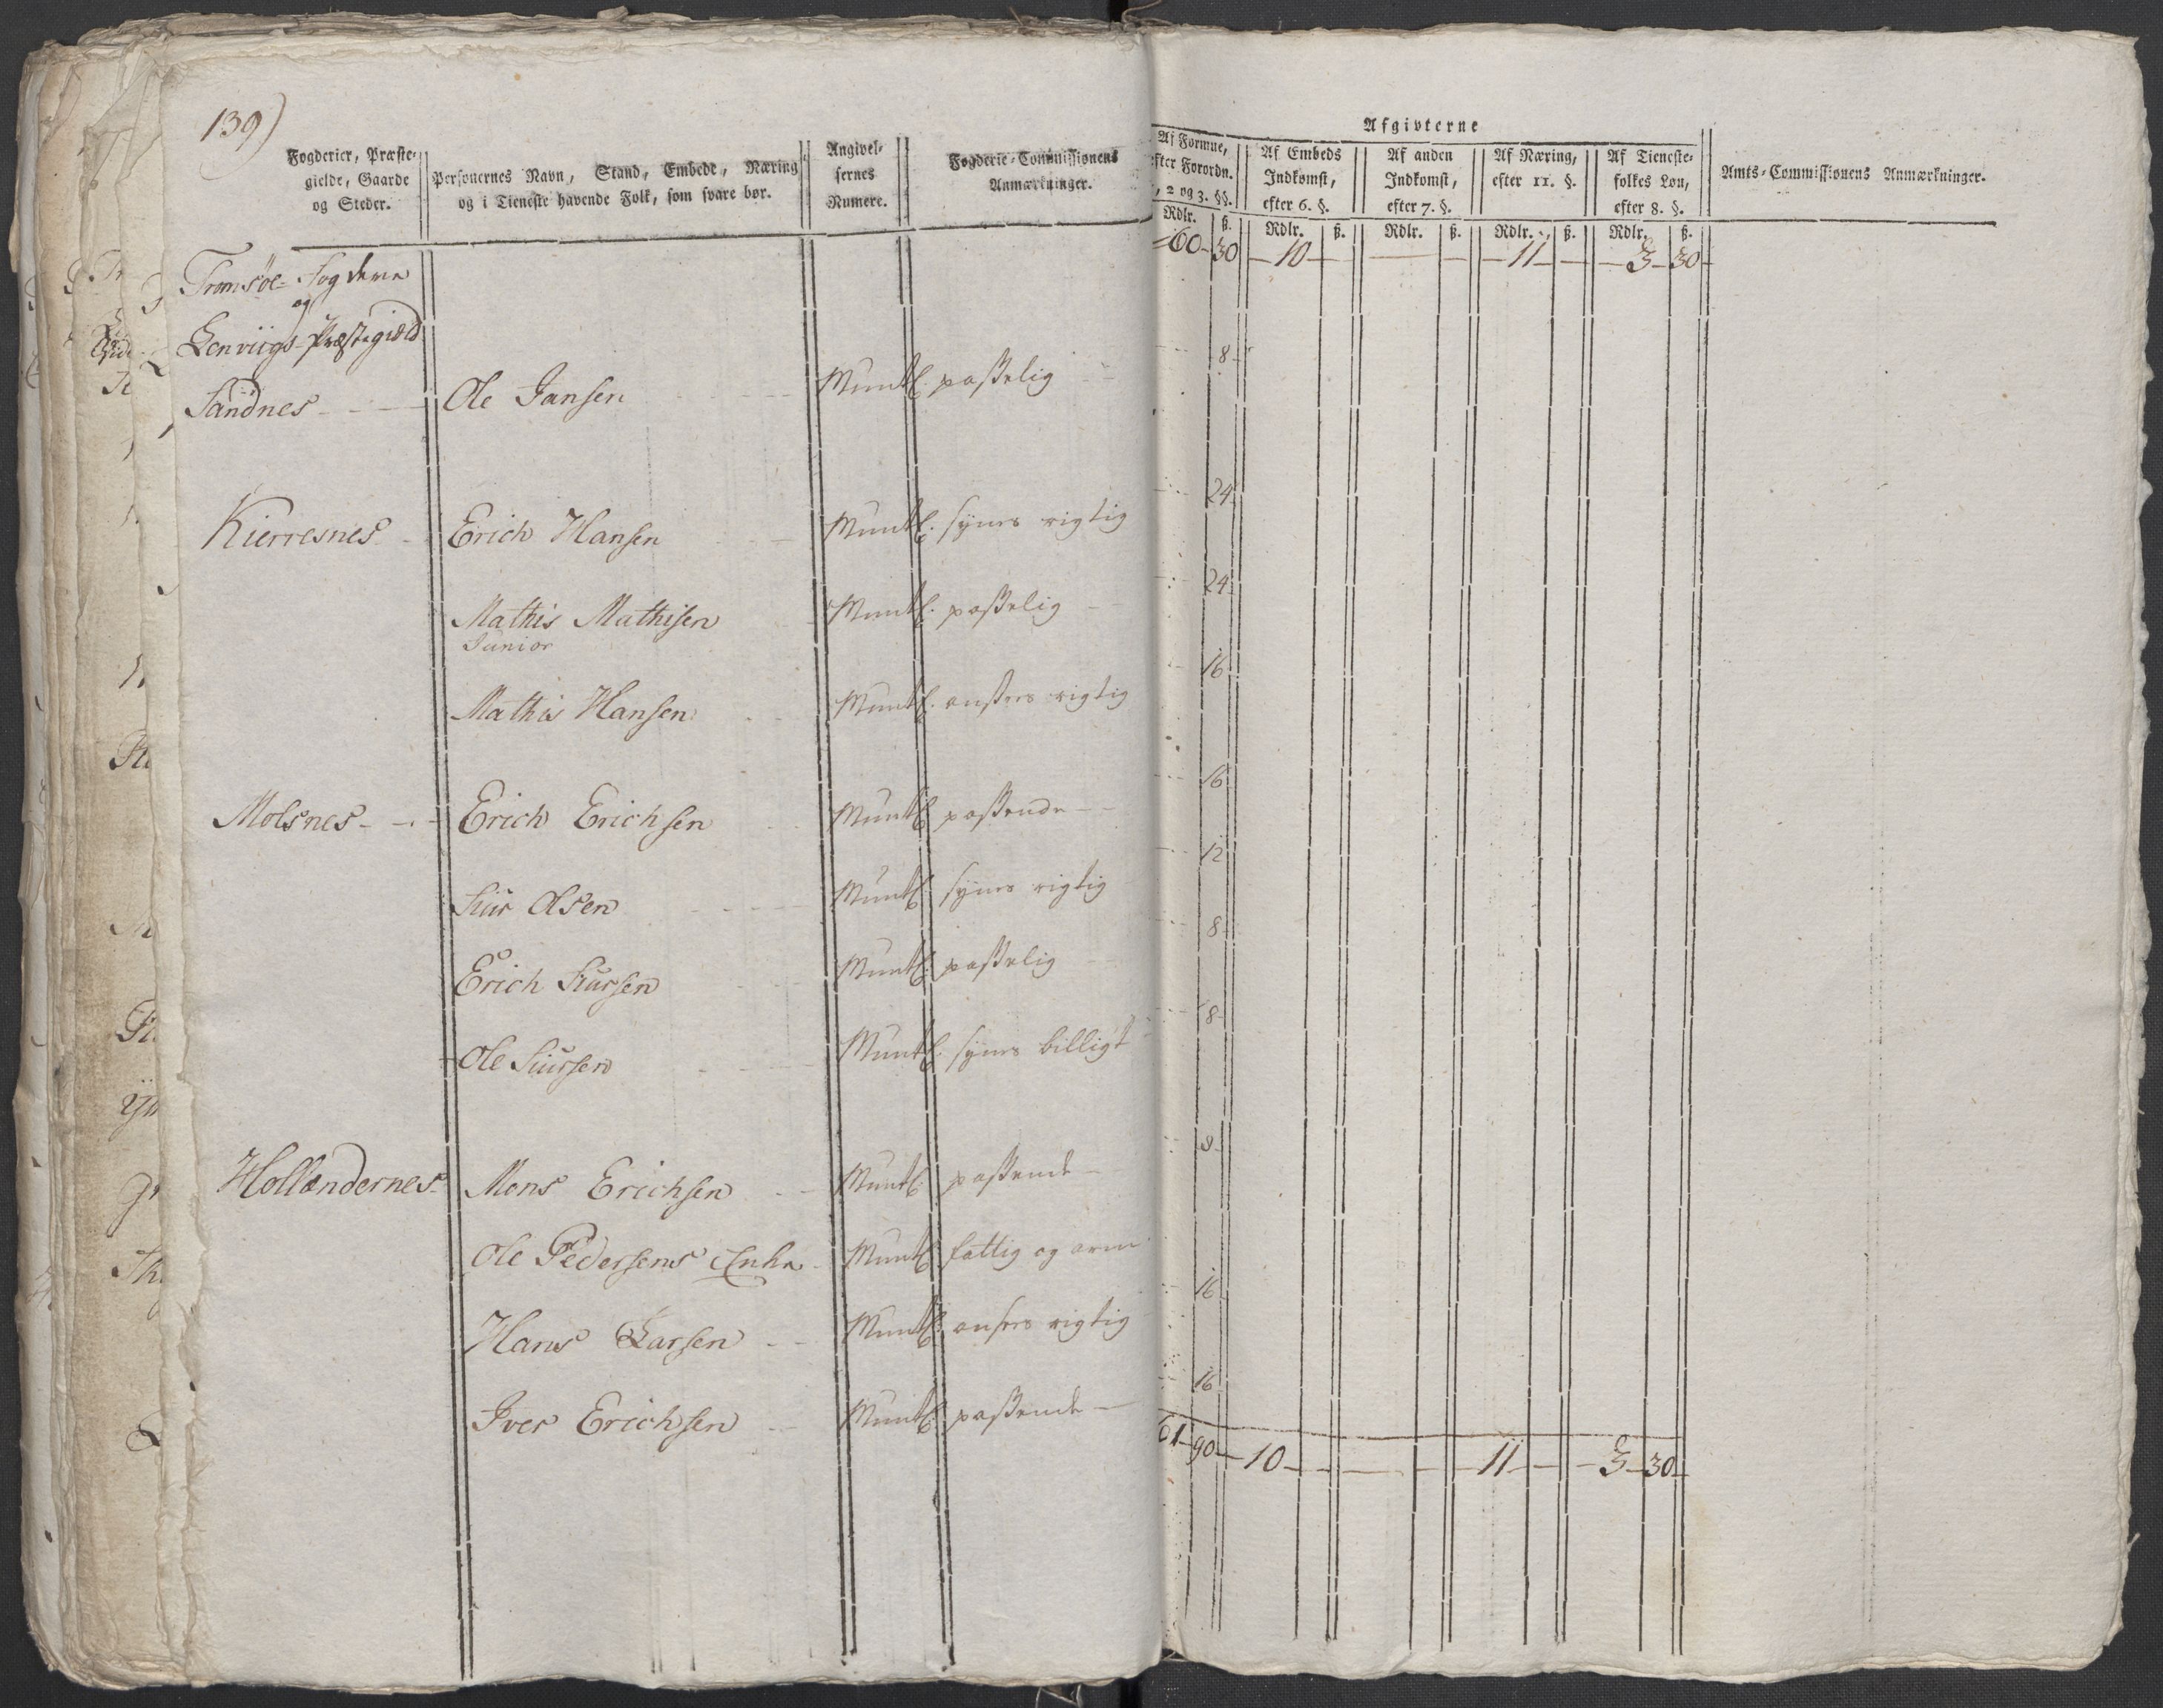 139)
Fogderier, Præste-
gielde, Gaarde
og Steder.
Personernes Navn, Stand, Embede, Næring
og i Tieneste havende Folk, som svare bør.
Angivel-
sernes
Numere.
Fogderie-Commissionens
Anmærkninger.
Afgivterne
Af Formue,
efter Forordn.
, 2 og 3. §§.
Af Embeds
Indkomst,
efter 6. §.
Af anden
Indkomst,
efter 7. §.
Af Næring,
efter 11. §.
Af Tieneste-
folkes Løn,
efter 8. §.
Amts-Commissionens Anmærkninger.
Rdlr. ß. Rdlr. ß. Rdlr. ß. Rdlr. ß. Rdlr. ß.
60 30 10 — — — 11 — 3 30
Tromsøe-Fogderie
og
Lenviigs-Præstegield
Sandnes Ole Jansen Muntl. paßelig 8
Kierresnes Erich Hansen Muntl. synes rigtig 24
Mathis Mathisen Muntl. paßelig 24
Junior
Mathis Hansen Muntl. ansees rigtig 16
Molsnes Erich Erichsen Muntl. paßende 16
Siur Olsen Muntl. synes rigtig 12
Erich Siursen Muntl. paßelig 8
Ole Siursen Muntl. synes billigt 8
Hollændernes Mons Erichsen Muntl. paßende 8
Ole Pedersens Enke Muntl. fattig og arm
Hans Larsen Muntl. ansees rigtig 16
Iver Erichsen Muntl. paßende 16
61 90 10 — — — 11 — 3 30